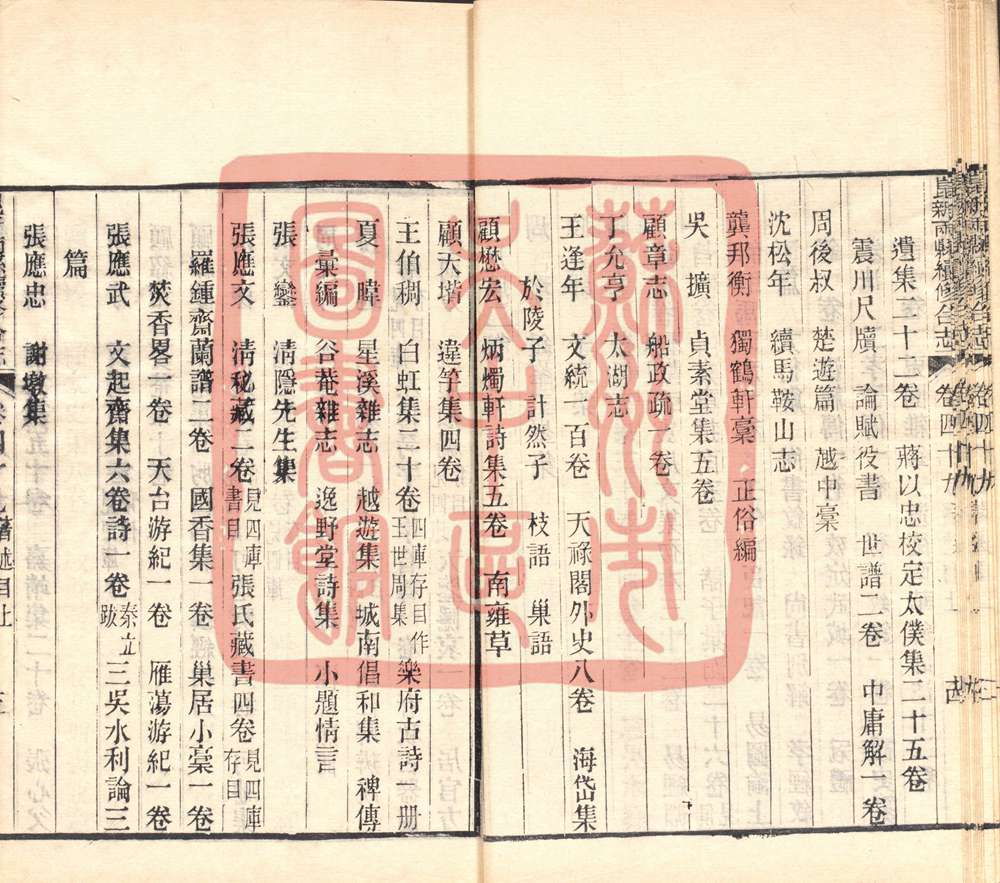 崑新兩縣續修合志 卷四十九
遺集三十二卷 蔣以忠校定太僕集二十五卷
震川尺牘 論賦役書 世譜二卷 中庸解一卷
周後叔 楚遊篇 越中稾
沈松年 續馬鞍山志
龔邦衡 獨鶴軒稾 正俗編
吳擴 貞素堂集五卷
顧章志 船政疏一卷
丁允亨 太湖志
王逢年 文統一百卷 天祿閣外史八卷 海岱集
於陵子 計然子 枝語 巢語
顧懋宏 炳燭軒詩集五卷 南雍草
顧天堦 違竽集四卷
王伯稠 白虹集三十卷 四庫存目作王世周集 樂府古詩一册
夏暐 星溪雜志 越遊集 城南倡和集 稗傳
彙編 谷菴雜志 逸野堂詩集 小題情言
張鑾 淸隱先生集
張應文 淸秘藏二卷 見四庫書目 張氏藏書四卷 見四庫存目
羅鍾齋蘭譜二卷 國香集一卷 巢居小稾一卷
焚香畧一卷 天台游紀一卷 雁蕩游紀一卷
張應武 文起齋集六卷詩一卷 泰立跋 三吳水利論三
篇
張應忠 謝墩集
著述目上
蘇州市文史館圖書館